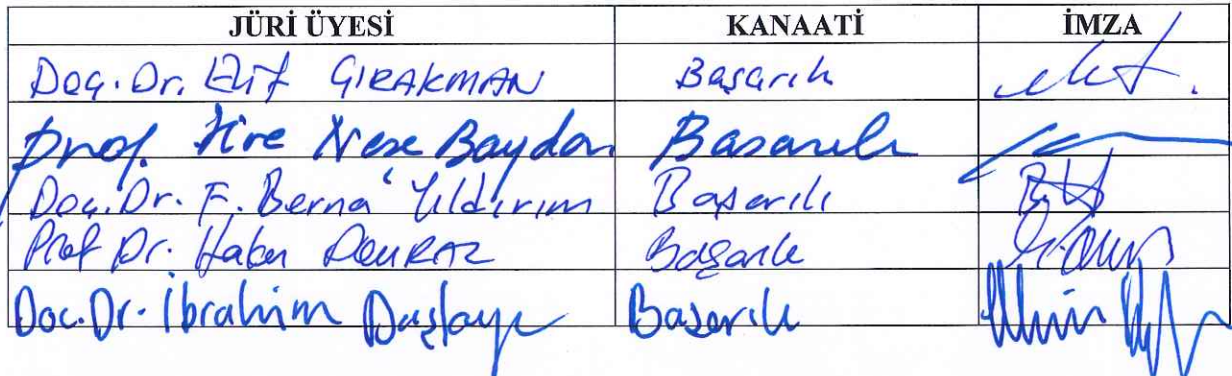 JÜRİ ÜYESİ KANAATİ İMZA
Doç. Dr. Elif GIRAKMAN Başarılı
Prof. Neşe Baydar Başarılı
Doç. Dr. F. Berna Yıldırım Başarılı
Prof Dr. Hakan Başarılı
Doc. Dr. İbrahim Başarılı